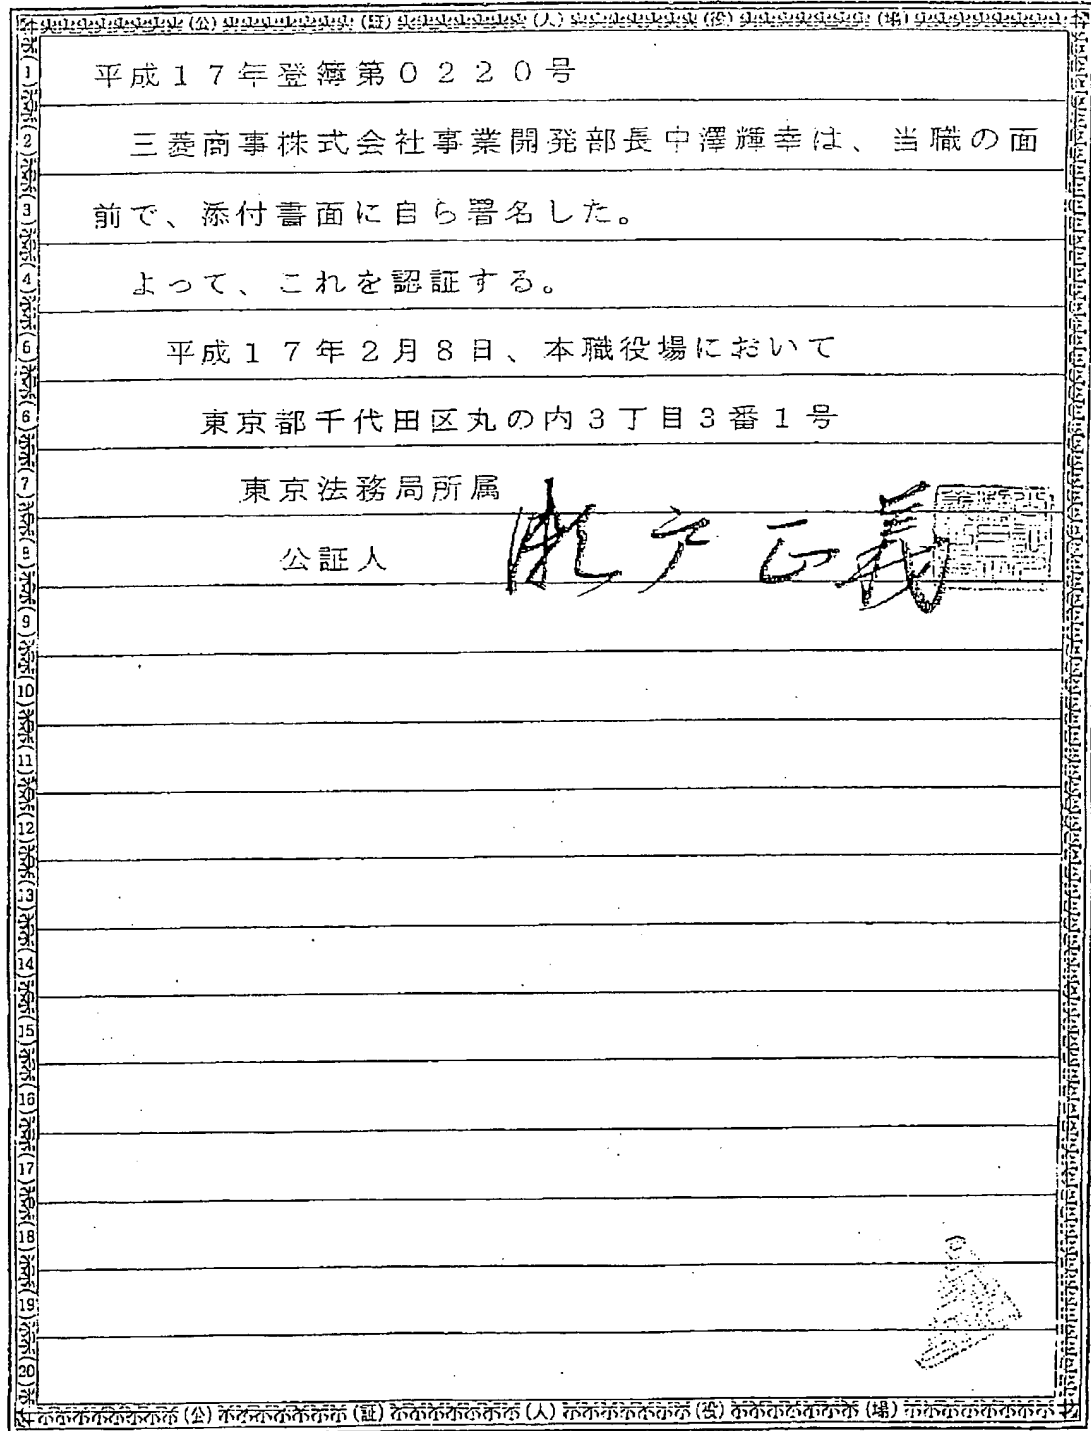 (公) (証) (人) (役) (場)
1 平成17年登簿第0220号
2 三菱商事株式会社事業開発部長中澤輝幸は、当職の面
3 前で、添付書面に自ら署名した。
4 よって、これを認証する。
5 平成17年2月8日、本職役場において
6 東京都千代田区丸の内3丁目3番1号
7 東京法務局所属
8 公証人 正義
9
10
11
12
13
14
15
16
17
18
19
20
(公) (証) (人) (役) (場)